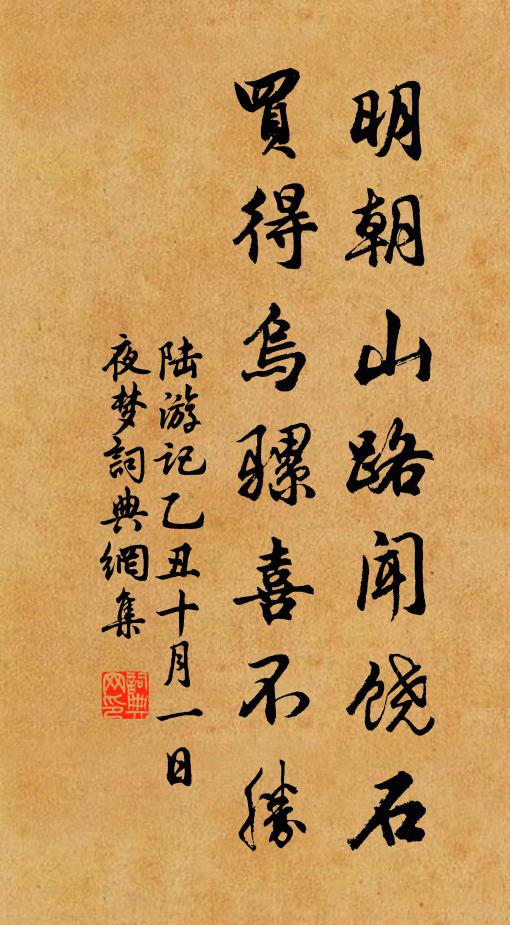 明朝山路闻饶石
買得烏騾喜不勝
陆游记乙丑十月一日
夜梦詞典網集
詞典
网印